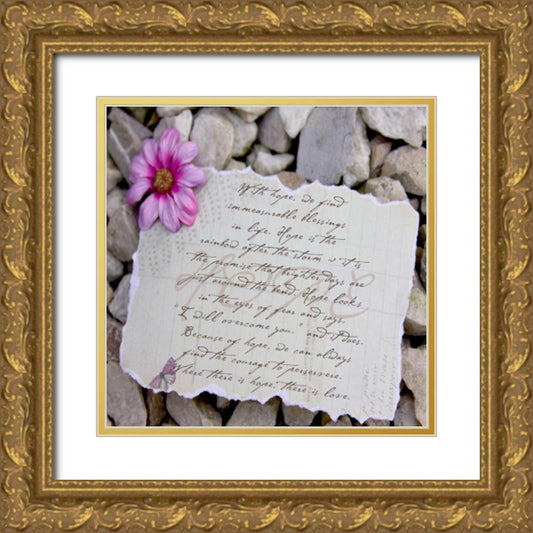 With hope, we find
immeasurable blessings
in life. Hope is the
rainbow after the storm it is
the promise that brighter days are
just around the bend. Hope looks
in the eyes of fear and says,
"I will overcome you," and it does.
Because of hope, we can always
find the courage to persevere.
Where there is hope, there is love.